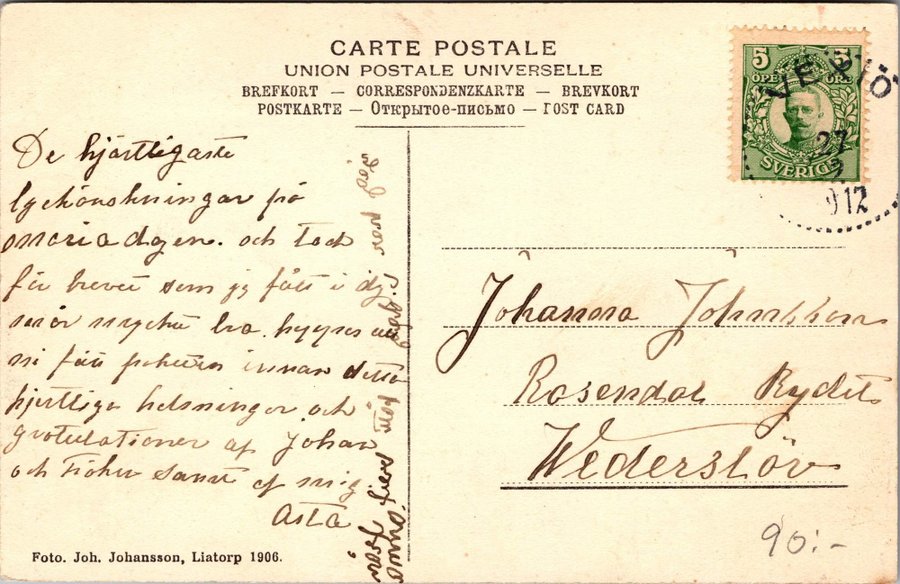 CARTE POSTALE
UNION POSTALE UNIVERSELLE
BREFKORT – CORRESPONDENZKARTE – BREVKORT
POSTKARTE – Открытое-письмо – POST CARD
5 5
ÖRE ÖRE
SVERIGE
27
3
912
De hjärtligaste
lyckönskningar på
mariadgen. och tack
för brevet som jg fått i dg
mår mycket bra. hoppes att
ni fått paketen innan detta
hjertliga helsningar och
gratulationer af Johan
och samt af mig
Asta
Johanna Johnsson
Rosendal Rydet
Wederslöv
90:-
Foto. Joh. Johansson, Liatorp 1906.